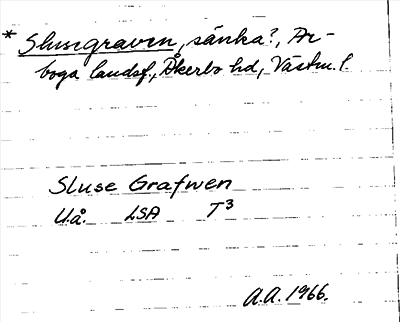 * Slussgraven, sänka?, Ar-
boga landsf., Åkerbo hd, Västm. l.
Sluse Grafwen
U.å. LSA T³
A.A. 1966.